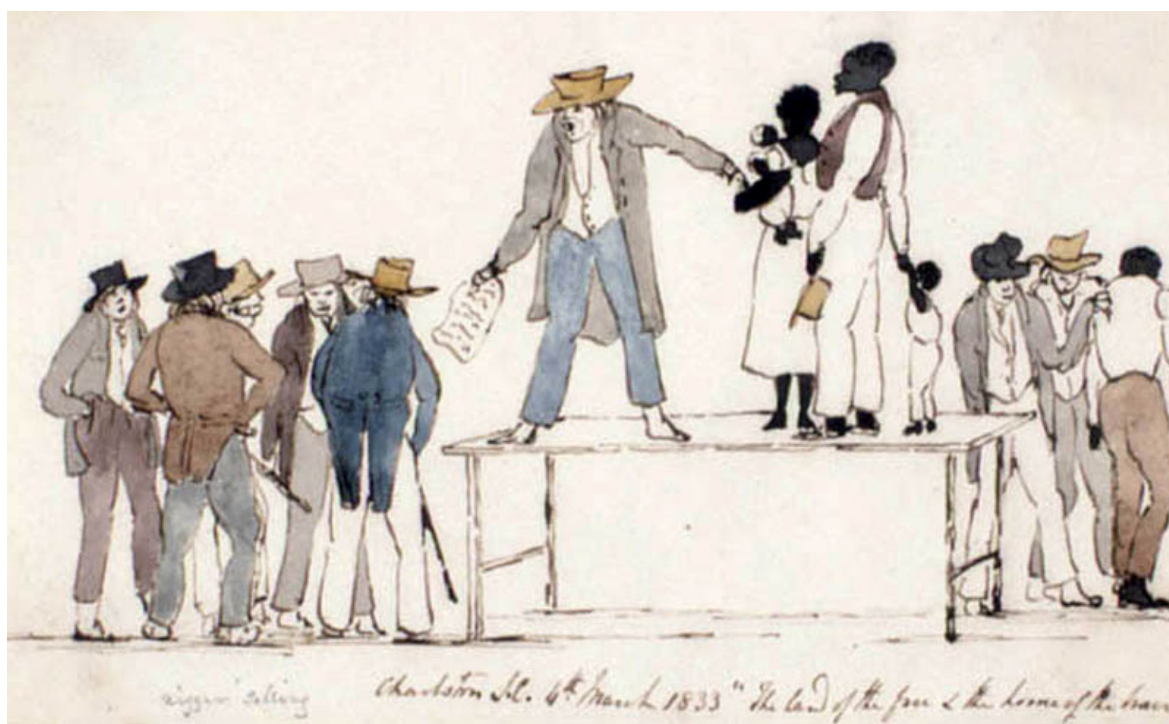 nigger selling
Charlston S.C. 4th March 1833 "The land of the free & the home of the brav